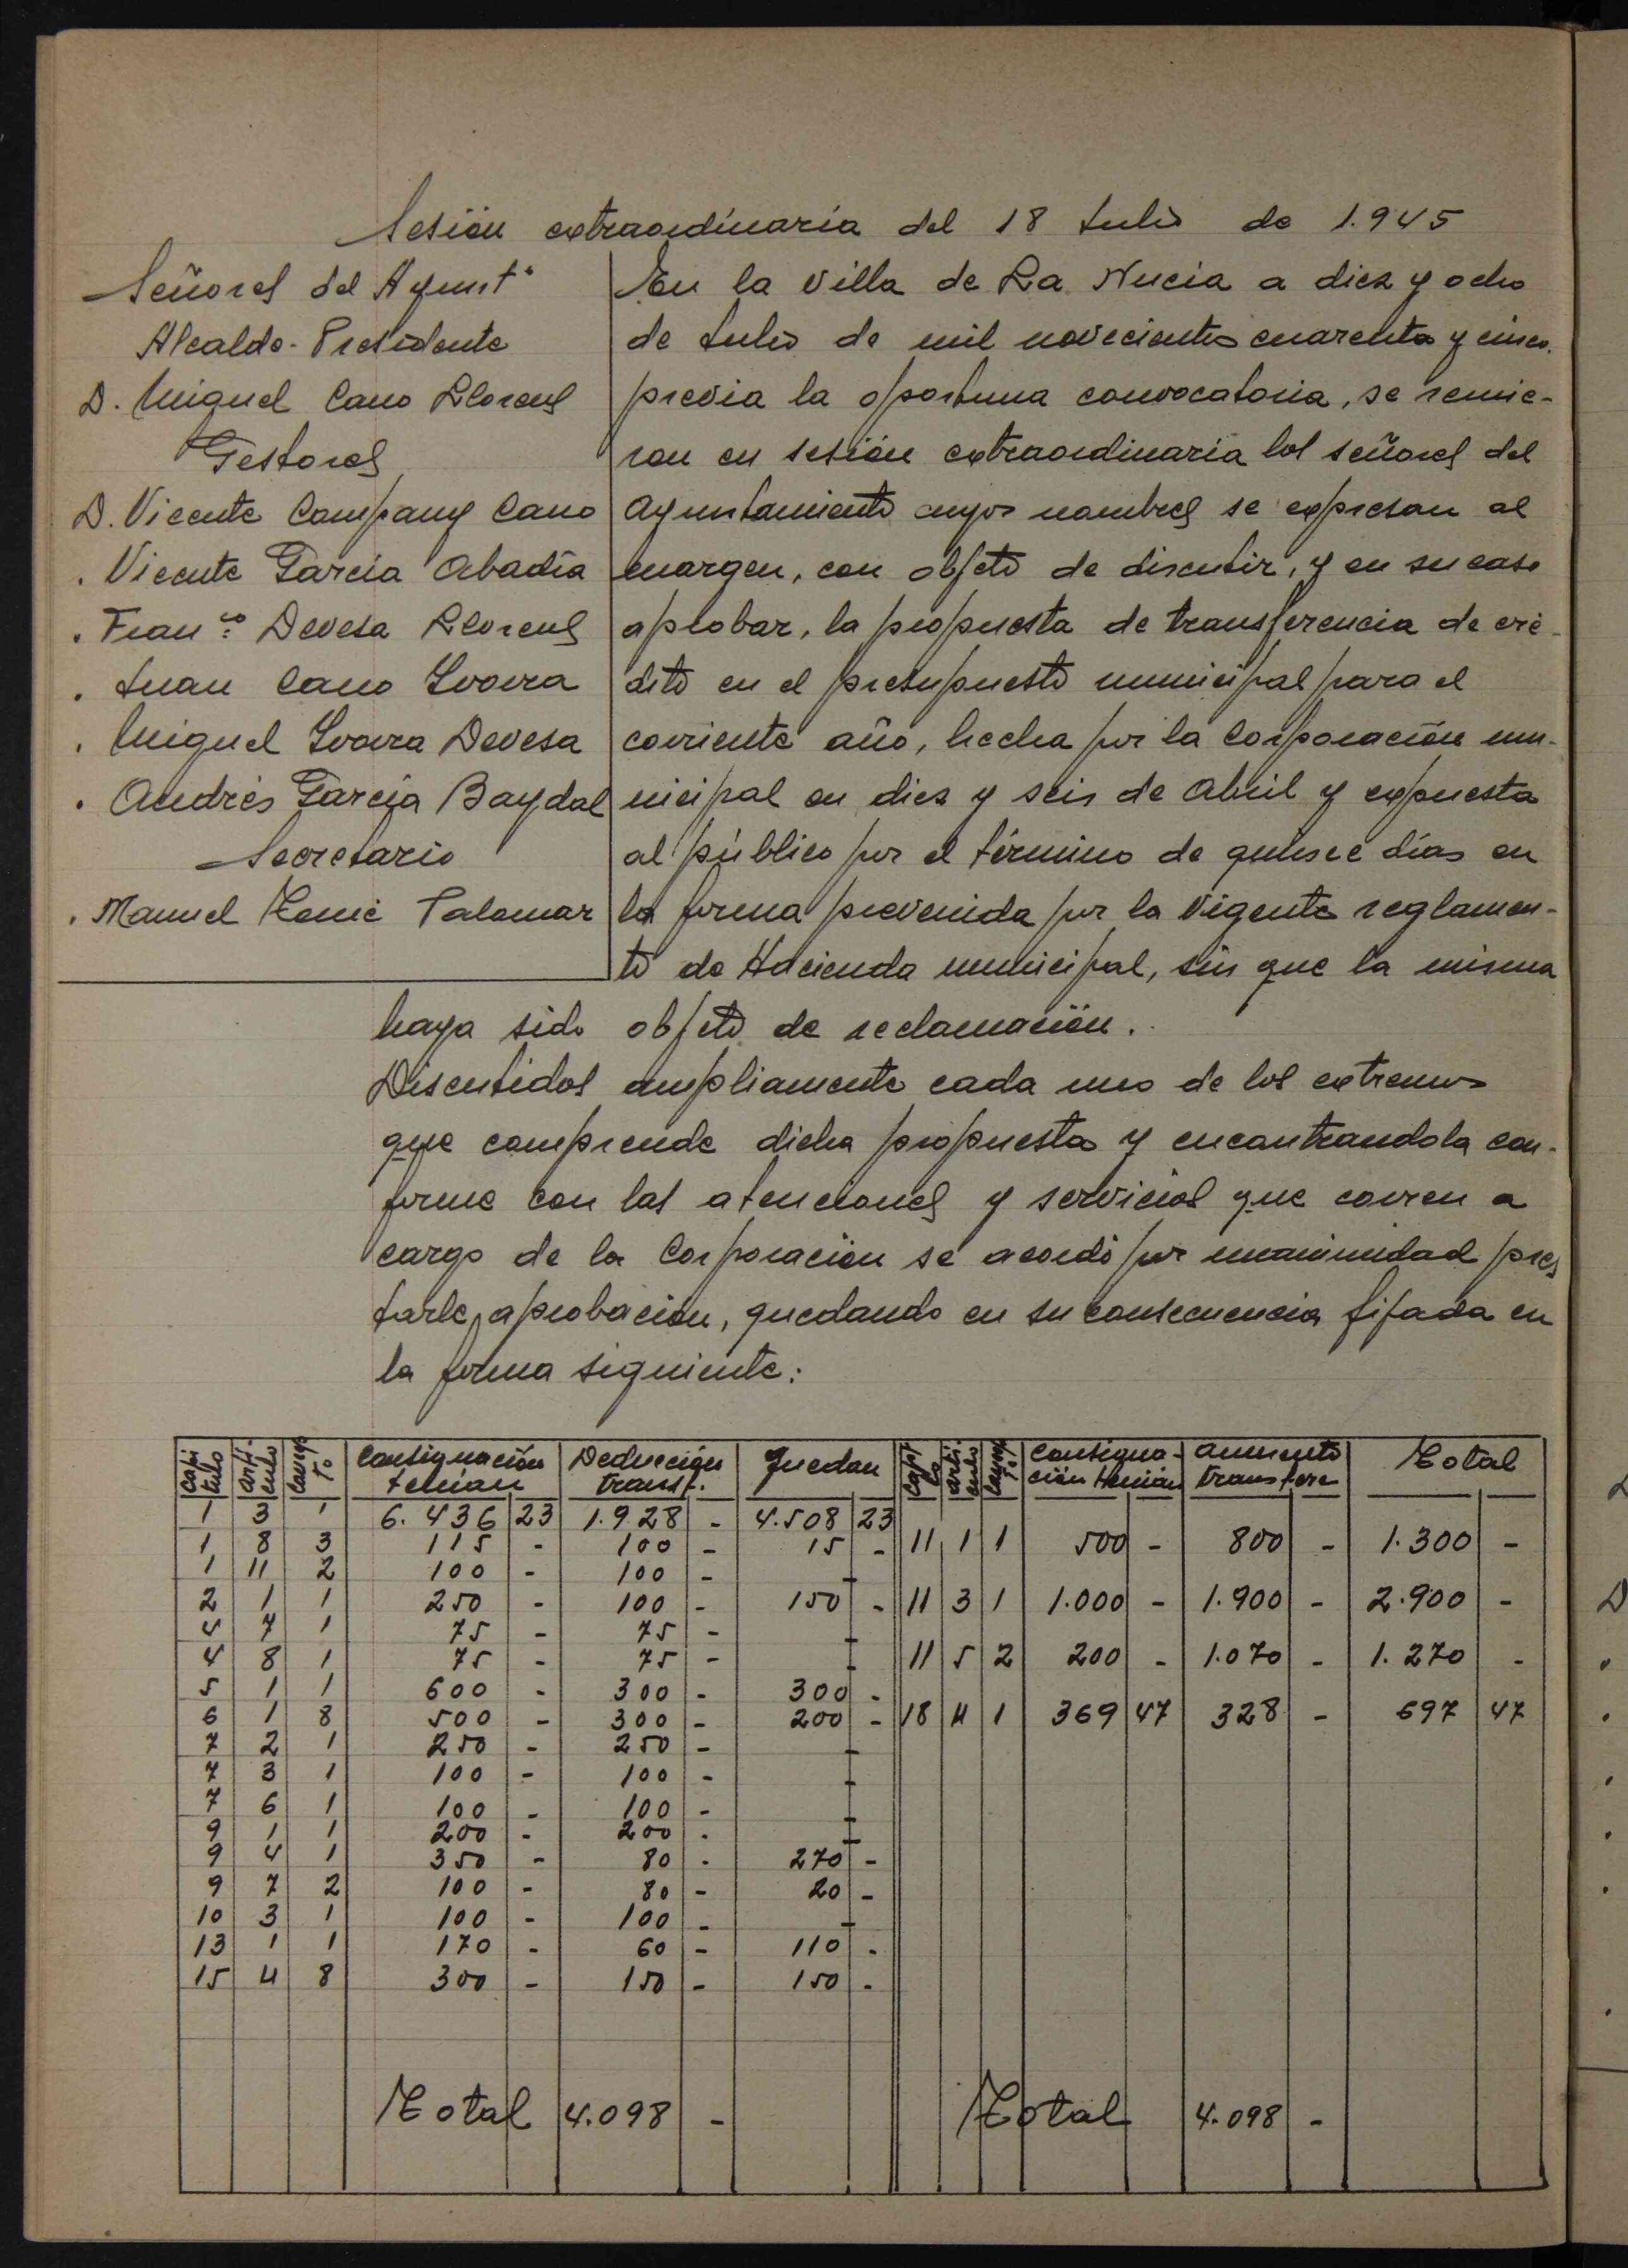 Sesión extraordinaria del 18 Julio de 1.945
Señores del Ayunt°
Alcalde-Presidente
D. Miguel Cano Llorens
Gestores
D. Vicente Company Cano
. Vicente García Abadía
. Fran.co Devesa Llorens
. Juan Cano Ivorra
. Miguel Ivorra Devesa
. Andrés García Baydal
Secretario
. Manuel Palomar
En la Villa de La Nucia a diez y ocho
de Julio de mil novecientos cuarenta y cinco,
previa la oportuna convocatoria, se reunie-
ron en sesión extraordinaria los señores del
Ayuntamiento cuyos nombres se expresan al
margen, con objeto de discutir, y en su caso
aprobar, la propuesta de transferencia de cré-
dito en el presupuesto municipal para el
corriente año, hecha por la Corporación mu-
nicipal en diez y seis de Abril y expuesta
al público por el término de quince días en
la forma prevenida por la vigente reglamen-
to de Hacienda municipal, sin que la misma
haya sido objeto de reclamación.
Discutidos ampliamente cada uno de los extremos
que comprende dicha propuesta y encontrandola con-
forme con las atenciones y servicios que corren a
cargo de la Corporación se acordó por unanimidad pres
tarle aprobación, quedando en su consecuencia fijada en
la forma siguiente:
Capi tulo Arti- culo Consignación tenían Deducción transf. Quedan Arti- culo Consigna- ción tenían Aumento transfere Total
1 3 1 6.436 23 1.928 - 4.508 23
1 8 3 115 - 100 - 15 - 11 1 1 500 - 800 - 1.300 -
1 11 2 100 - 100 - -
2 1 1 250 - 100 - 150 - 11 3 1 1.000 - 1.900 - 2.900 -
4 7 1 75 - 75 - -
4 8 1 75 - 75 - - 11 5 2 200 - 1.070 - 1.270 -
5 1 1 600 - 300 - 300 -
6 1 8 500 - 300 - 200 - 18 4 1 369 47 328 - 697 47
7 2 1 250 - 250 - -
7 3 1 100 - 100 - -
7 6 1 100 - 100 - -
9 1 1 200 - 200 - -
9 4 1 350 - 80 - 270 -
9 7 2 100 - 80 - 20 -
10 3 1 100 - 100 - -
13 1 1 170 - 60 - 110 -
15 4 8 300 - 150 - 150 -
Total 4.098 - Total 4.098 -